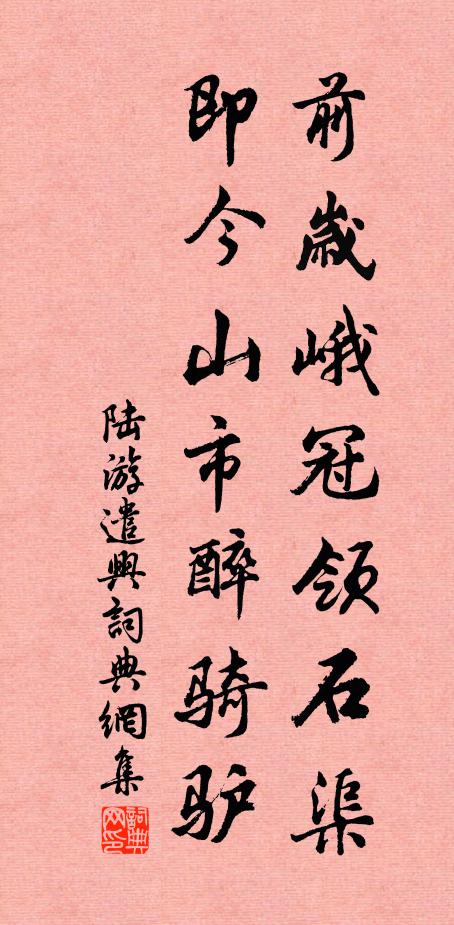 前歲峨冠領石渠
即今山市醉骑驴
陆游遣興詞典網集
詞典网印